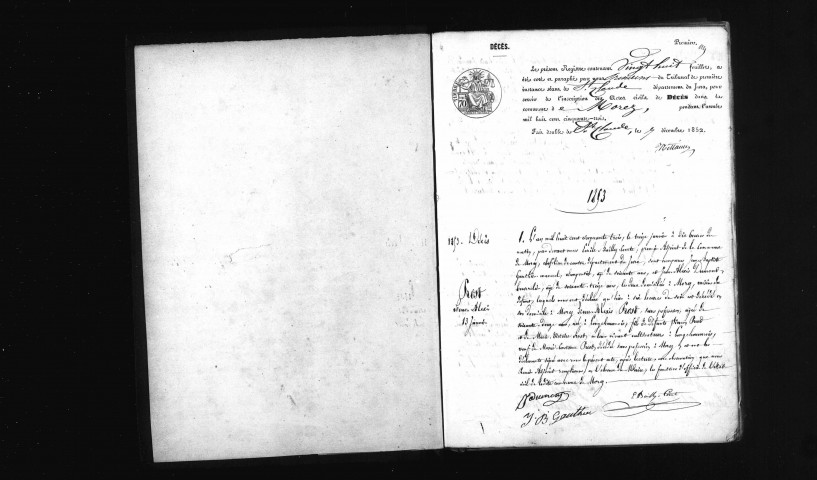 DÉCÈS.
Premier,
Le présent Registre contenant Vingt huit feuillets, a
été coté et paraphé par nous Président du Tribunal de première
instance séant de St Claude département du Jura, pour
servir à l'inscription des Actes civils de DÉCÈS dans la
commune d e Morez, pendant l'année
mil huit cent cinquante-trois.
Fait double de St Claude, le 7 décembre 1852.
1853
1853. Décès
Prost
Alexis
13 Janv.
1. L'an mil huit cent cinquante trois, le treize janvier à dix heures du
matin, par devant nous Emile Bailly Comte, premier Adjoint de la commune
de Morez, chef lieu de canton, département du Jura, sont comparus Jean Baptiste
Gauthier âgé de soixante ans, et Jean Alexis Dumont,
âgé de soixante treize ans, les deux domiciliés à Morez, voisins du
défunt, lesquels nous ont déclaré que hier à six heures du soir est décédé en
son domicile à Morez Alexis Prost, sans profession, âgé de
soixante ans, né à Longchaumois, fils de défunts Prost
et de Marie Prost, cultivateurs à Longchaumois,
veuf de Marie Prost, décédée sans profession à Morez, et ont les
déclarants signé avec nous le présent acte, après lecture,
Adjoint remplissant en l'absence du Maire, les fonctions d'officier de l'état
civil de la dite commune de Morez.
Dumont
J. B. Gauthier
E Bailly-Comte